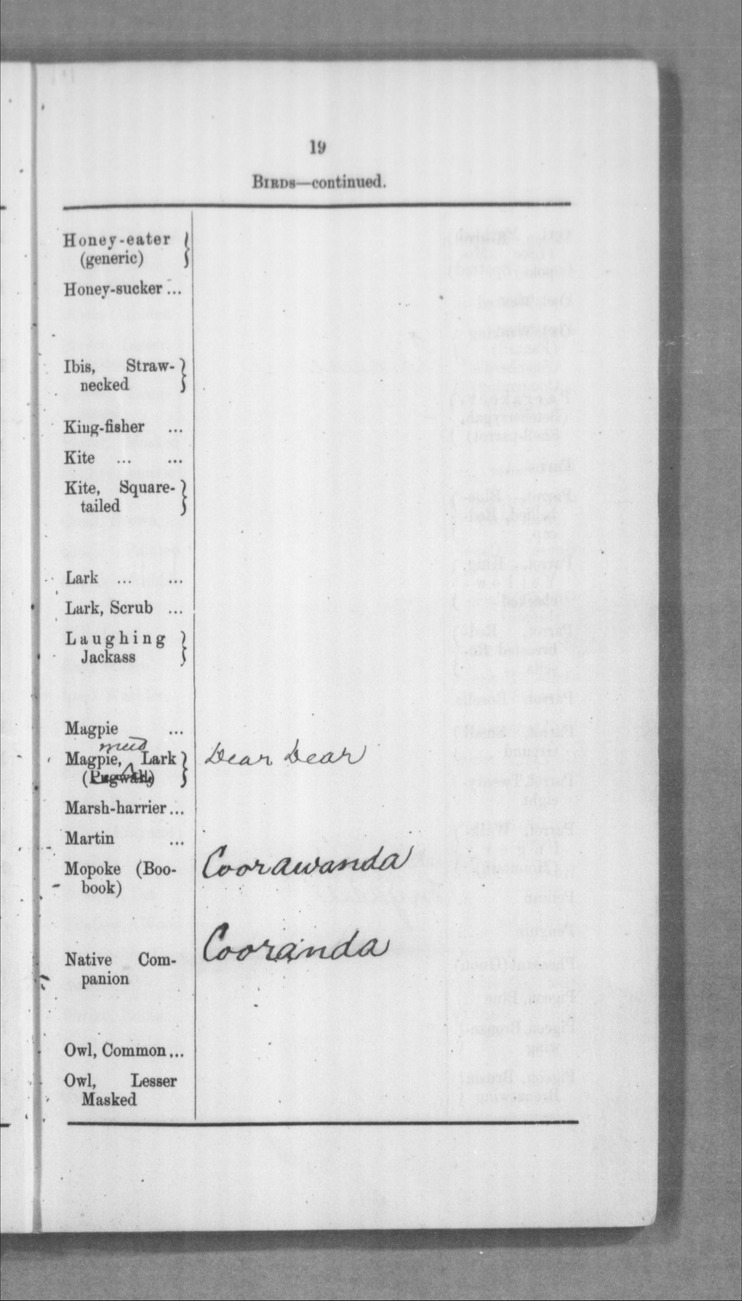 19
BIRDS—continued.
Honey-eater
(generic)
Honey-sucker ...
Ibis, Straw-
necked
King-fisher ...
Kite ... ...
Kite, Square-
tailed
Lark ... ...
Lark, Scrub ...
Laughing
Jackass
Magpie ...
mud
Magpie, Lark Dear dear
(Pugwall)
Marsh-harrier...
Martin ...
Mopoke (Boo- Coorawanda
book)
Native Com- Cooranda
panion
Owl, Common...
Owl, Lesser
Masked